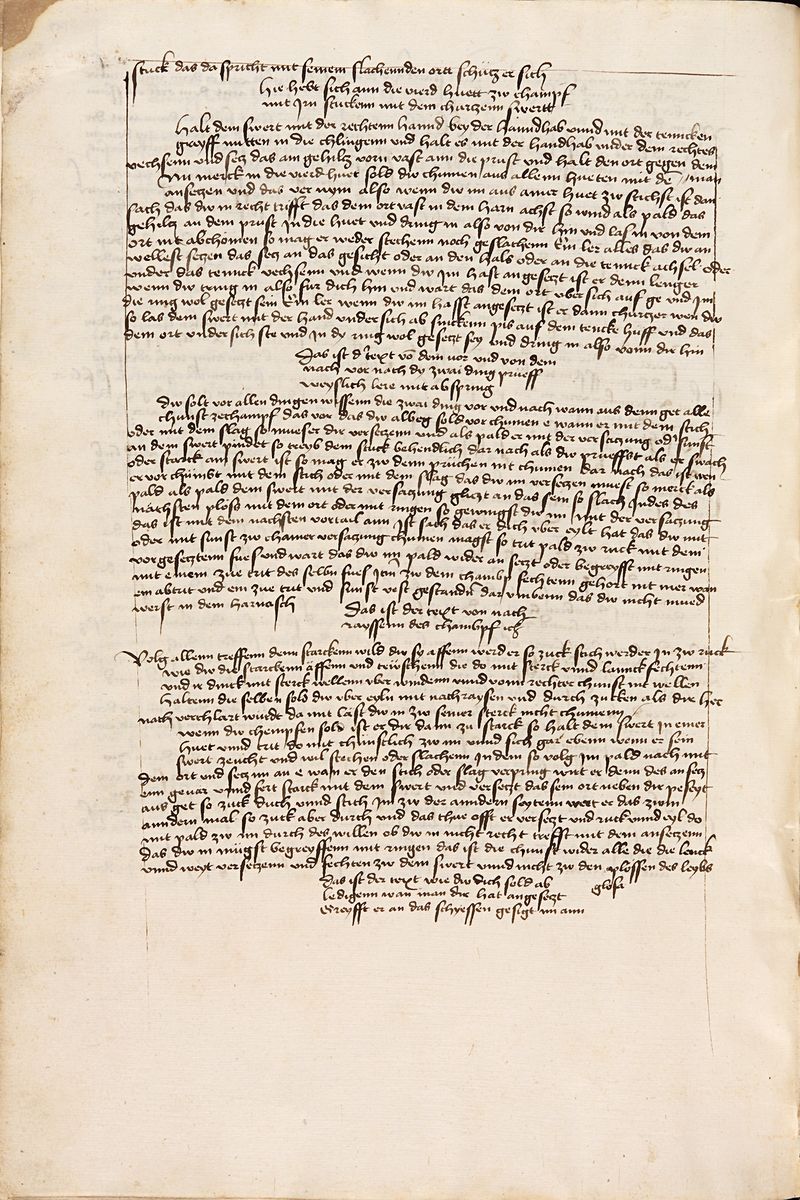 stuck das da spricht mit seinem slachennden ortt schützer sich
hie hebt sich ann die vierd huett zw champf
mit Irn stuckenn mit dem churczenn swertt
Halt dein swert mit der rechtenn hannd bey der hanndhab vnnd mit der tenncken
greyff mitten in die chlingenn vnd halt es mit der handhab vnder dem rechtes
vechsenn vnd secz das am gehilcz vorn vast ann die prust vnd halt den ort gegen dem
man Nw merck in die vierd huet sold dw chumen aus allenn hueten mit dem
anseczen vnd das ver nym also wenn dw im aus ainer huet zw stichst ist dan
sach das dw in recht trifft das dem ort vast in dem harnasch so wind als pald das
gehilcz an dein prust In die huet vnd dring in also von dir hin vnd las in von dem
ort nit abchomen so mag er weder stechenn noch geslachenn Ein ler alles das dw an
wellest seczen das secz an das gesicht oder an den hals oder an die tennck achsel oder
vnder das tennck vechsenn vnd wenn dw Im hast angeseczt ist er denn lenger
wenn dw tring in also fur dich hin vnd wart das dein ort vber sich auf ge vnd Im
die ring wol geseczt sein Ein ler wenn dw im hasst angeseczt ist er dann churczer wen dw
so las dein swert mit der hand vnder sich ab sinckenn pis auf dein tencke huff vnd das
dein ort vnder sich ste vnd In dy ring wol geseczt sey vnd dring in also vonn dir hin
Das ist der text von dem vor vnd von dem
nach vor nach dy zwai ding prueff
weyslich lere mit abspring
Dw solt vor allen dingen wissenn die zwai ding vor vnd nach wann aus denn get alle
chunst zechampf das vor das dw albeg sold vor chumen e wann er mit dem stich
oder mit dem slag so mueser dir verseczenn vnd als pald er mit der versaczung oder sunst
an dein swert pindet so treyb dein stuck behendlich dar nach als dw prueffst als er swach
oder starck am swert ist so mag er zw denn pruchen nit chumen dar nach das ist wen
er vor chumbt mit dem stich oder mit dem slag das dw im verseczen muest so merck als
pald als pald dein swert mit der versaczung gliczt an das sein so slach Indes des
nachsten ploss mit dem ort oder mit ringen so gewingst dw im mit der versaczung
das ist mit dem nachsten vortail ann Ist sach das er dich vber eylt hat das dw mit
oder mit sunst zw chainer versaczung chumen magst so trit pald zw ruck mit dem
vorgeseczttenn fues vnd wart das dw im pald wider an seczt oder begreyfft mit ringen
mit einem zue trit des selbn fues Item zw dem champf fechtenn gehort nit mer wan
ein abtrit vnd ein zue trit vnd sunst vest gestandn dar vmbenn das dw nicht mued
werst in dem harnasch
Das ist der text von nach
rayssenn des champf ich
Volg allenn treffenn denn starckenn wild dw so äffenn werd er so zuck stich werder Im zw ruck
wie dw die starckenn äffenn vnd teuschenn die do mit sterck vnnd lannck fechtenn
vnd ir dinck mit sterck wellenn vber windenn vnnd vonn rechter chunst nit wellen
haltenn die selben sold dw vber eyln mit nachraysen vnd durch zucken als dir hie
nach verchlart wurdt da mit läst dw in zw seiner sterck nicht chumenn
wenn dw chempfen sold ist er dir dann zu starck so halt dein swert in einer
huet vnnd trit do mit chunstlich zw im vnnd sich gar ebenn wenn er sein
swert zeucht vnd wil stechen oder slachenn Indem so volg im pald nach mit
dem ort vnd secz im an e wan er den stich oder slag verpring wirt er denn des ansecz
enn gewar vnnd fert starck mit dem swert vnd verseczt das sein ort neben dir peseyt
aus get so zuck duch vnnd stich Im zw der anndern seyten wert er das zwm
anndern mal so zuck aber durch vnd das thue offt er verseczt vnd ruck vnnd eyl do
mit pald zw im durch des willen ob dw in nicht recht treffst mit dem anseczenn
das dw in mügst begreyffenn mit ringen das ist die chunst wider alle die die lanck
vnnd weyt verseczenn vnd fechten zw dem swert vnnd nicht zw den plössen des leybs
Das ist der text wie dw dich sold ab glosa
ledigenn wan man dir hat angeseczt
Greyfft er an das schyessen gesigt im ann